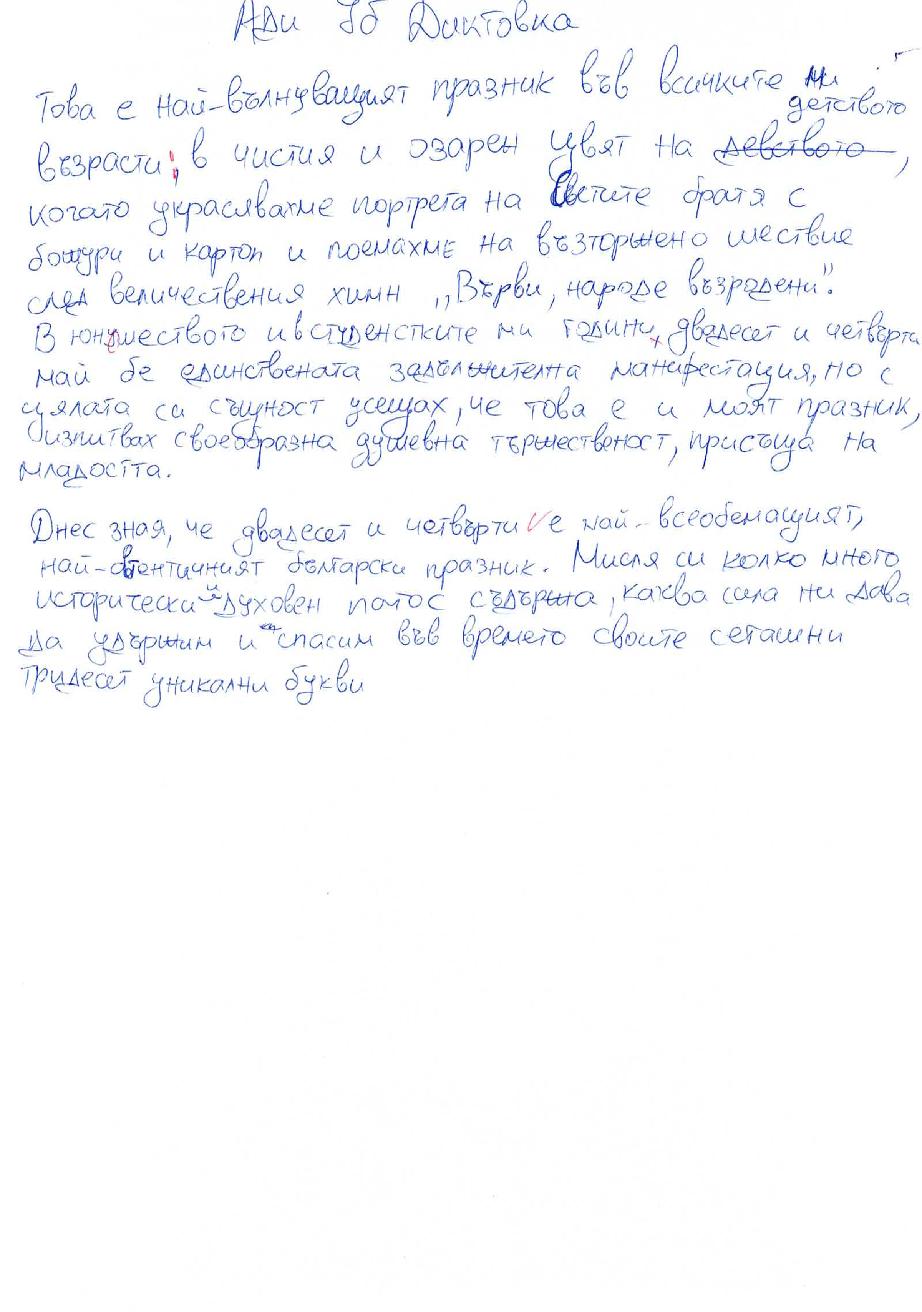 Ади 7б Диктовка
Това е най-вълнуващият празник във всичките ми
детството
възрасти; в чистия и озарен цвят на девството,
когато украсявахме портрета на Светите братя с
божури и картон и поемахме на възторжено шествие
след величествения химн „Върви, народе възродени".
В юношеството и в студенстките ми години двадесет и четвърти
май бе единствената задължителна манифестация, но с
цялата си същност усещах, че това е и моят празник,
изпитвах своеобразна душевна тържественост, присъща на
младостта.
Днес зная, че двадесет и четвърти е най-всеобемащият,
най-автентичният български празник. Мисля си колко много
исторически и духовен патос съдържа, каква сила ни дава
да удържим и спасим във времето своите сегашни
тридесет уникални букви